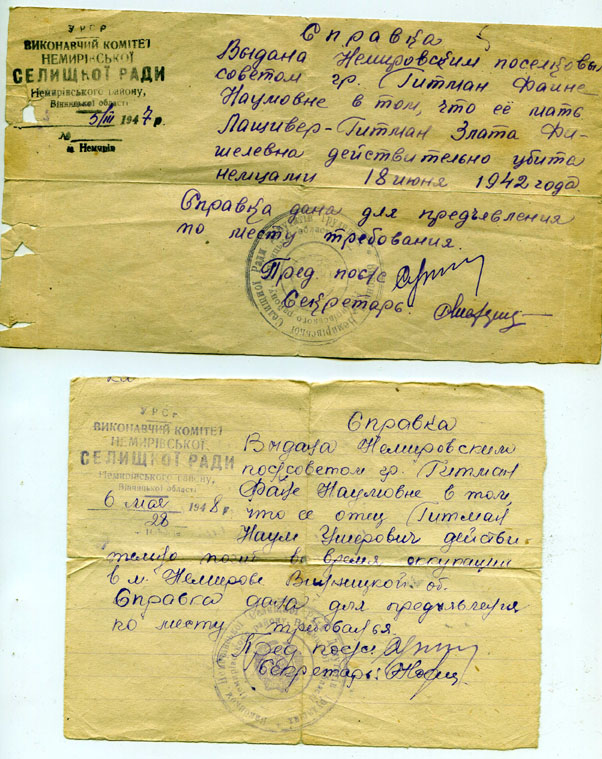 УРСР
ВИКОНАВЧИЙ КОМІТЕТ
НЕМИРІВСЬКОЇ
СЕЛИЩНОЇ РАДИ
Немирівського району,
Вінницької області
5/III 1947 р.
№
м. Немирів
Справка
Выдана Немировским поселковы
советом гр. Гитман Фаине
Наумовне в том, что её мать
Лащивер-Гитман Злата Фи-
шелевна действительно убита
немцами 18 июня 1942 года.
Справка дана для предъявления
по месту требования.
Пред. пос/с
Секретарь:
УРСР
ВИКОНАВЧИЙ КОМІТЕТ
НЕМИРІВСЬКОЇ
СЕЛИЩНОЇ РАДИ
Немирівського району,
Вінницької області
6 мая 1948 р.
28
Справка
Выдана Немировским
пос/советом гр. Гитман
Фаине Наумовне в том,
что ее отец Гитман
Наум Ушерович действи
тельно погиб во время оккупации
в м. Немирове Винницкой об.
Справка дана для предъявления
по месту требованья.
Пред. пос/с
Секретарь: